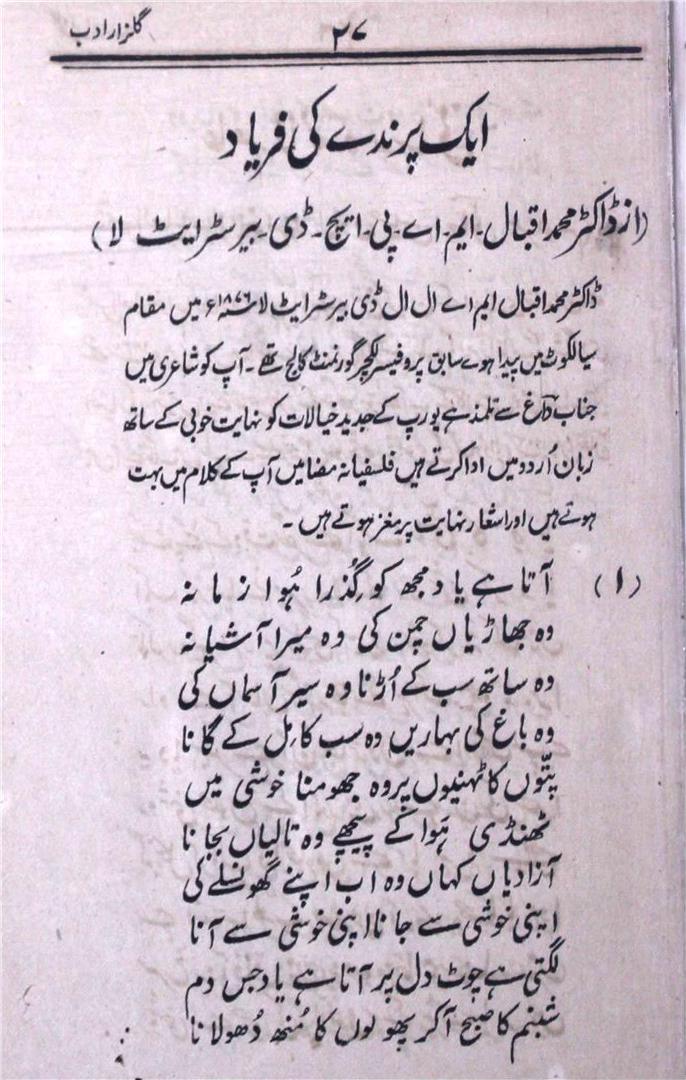 گلزار ادب ۲۷
ایک پرندے کی فریاد
(از ڈاکٹر محمد اقبال۔ ایم۔ اے۔ پی۔ ایچ۔ ڈی۔ بیرسٹر ایٹ لا)
ڈاکٹر محمد اقبال ایم اے ال ال ڈی بیرسٹر ایٹ لا سنہ ۱۸۷۶ء میں مقام
سیالکوٹ میں پیدا ہوے سابق پروفیسر لکچرر گورنمنٹ کالج تھے۔ آپ کو شاعری میں
جناب داغ سے تلمذ ہے یورپ کے جدید خیالات کو نہایت خوبی کے ساتھ
زبان اُردو میں ادا کرتے ہیں فلسفیانہ مضامیں آپ کے کلام میں بہت
ہوتے ہیں اور اشعار نہایت پر مغز ہوتے ہیں ۔
(۱) آتا ہے یاد مجھ کو گُذرا ہُوا زمانہ
وہ جھاڑیاں چمن کی وہ میرا آشیانہ
وہ ساتھ سب کے اُڑنا وہ سیر آسماں کی
وہ باغ کی بہاریں وہ سب کا مِل کے گانا
پتّوں کا ٹہنیوں پر وہ جھومنا خوشی میں
ٹھنڈی ہَوا کے پیچھے وہ تالیاں بجانا
آزادیاں کہاں وہ اب اپنے گھونسلے کی
اپنی خوشی سے جانا اپنی خوشی سے آنا
لگتی ہے چوٹ دل پر آتا ہے یاد جس دم
شبنم کا صبح آکر پھولوں کا مُنھ دُھولانا